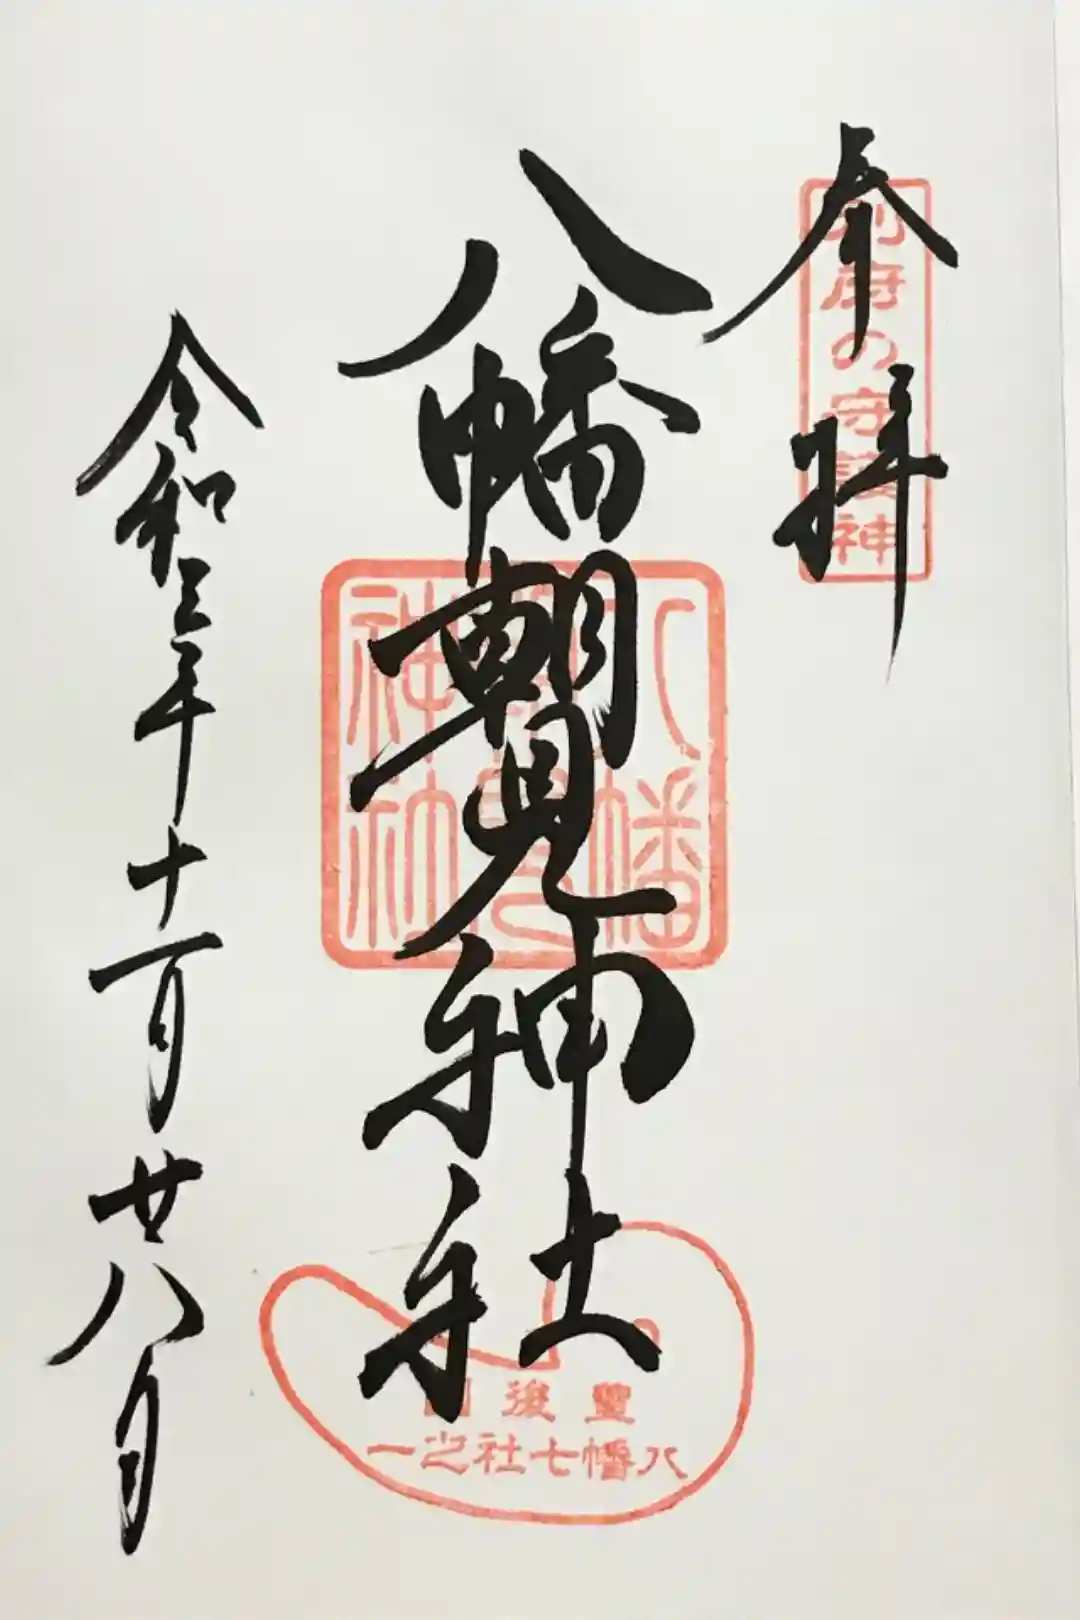 奉拝
別府の守護神
八幡朝見神社
八幡朝見神社
豊後國
八幡七社之一
令和三年十一月廿八日